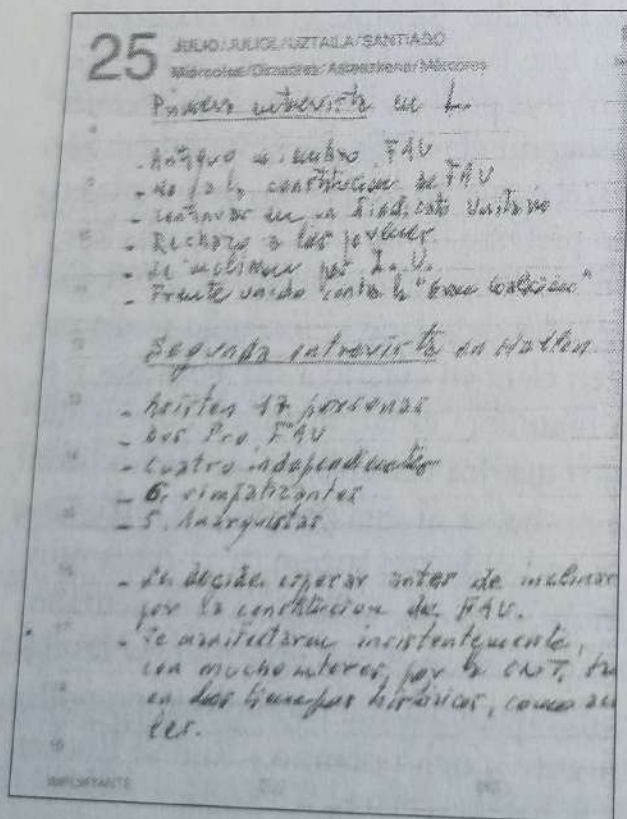 25 JULIO/JULIOL/UZTAILA/SANTIAGO
Miércoles/Dimecres/Asteazkena/Mércores
Primera entrevista en L.
- Antiguo miembro FAU
- No a la constitucion de FAU
- continuar en un Sindicato Unitario
- Rechazo a los jovenes
- Se inclinan por I.U.
- Frente unido contra la "Gran Coalicion"
Segunda entrevista en
- Asisten 17 personas
- Dos Pro FAU
- cuatro independientes
- 6. simpatizantes
- 5. Anarquistas
- Se decide esperar antes de inclinar
por la constitucion de FAU.
- Se insistentemente,
con mucho interes, por la CNT,
en los tiempos historicos, como
les.
IMPORTANTE